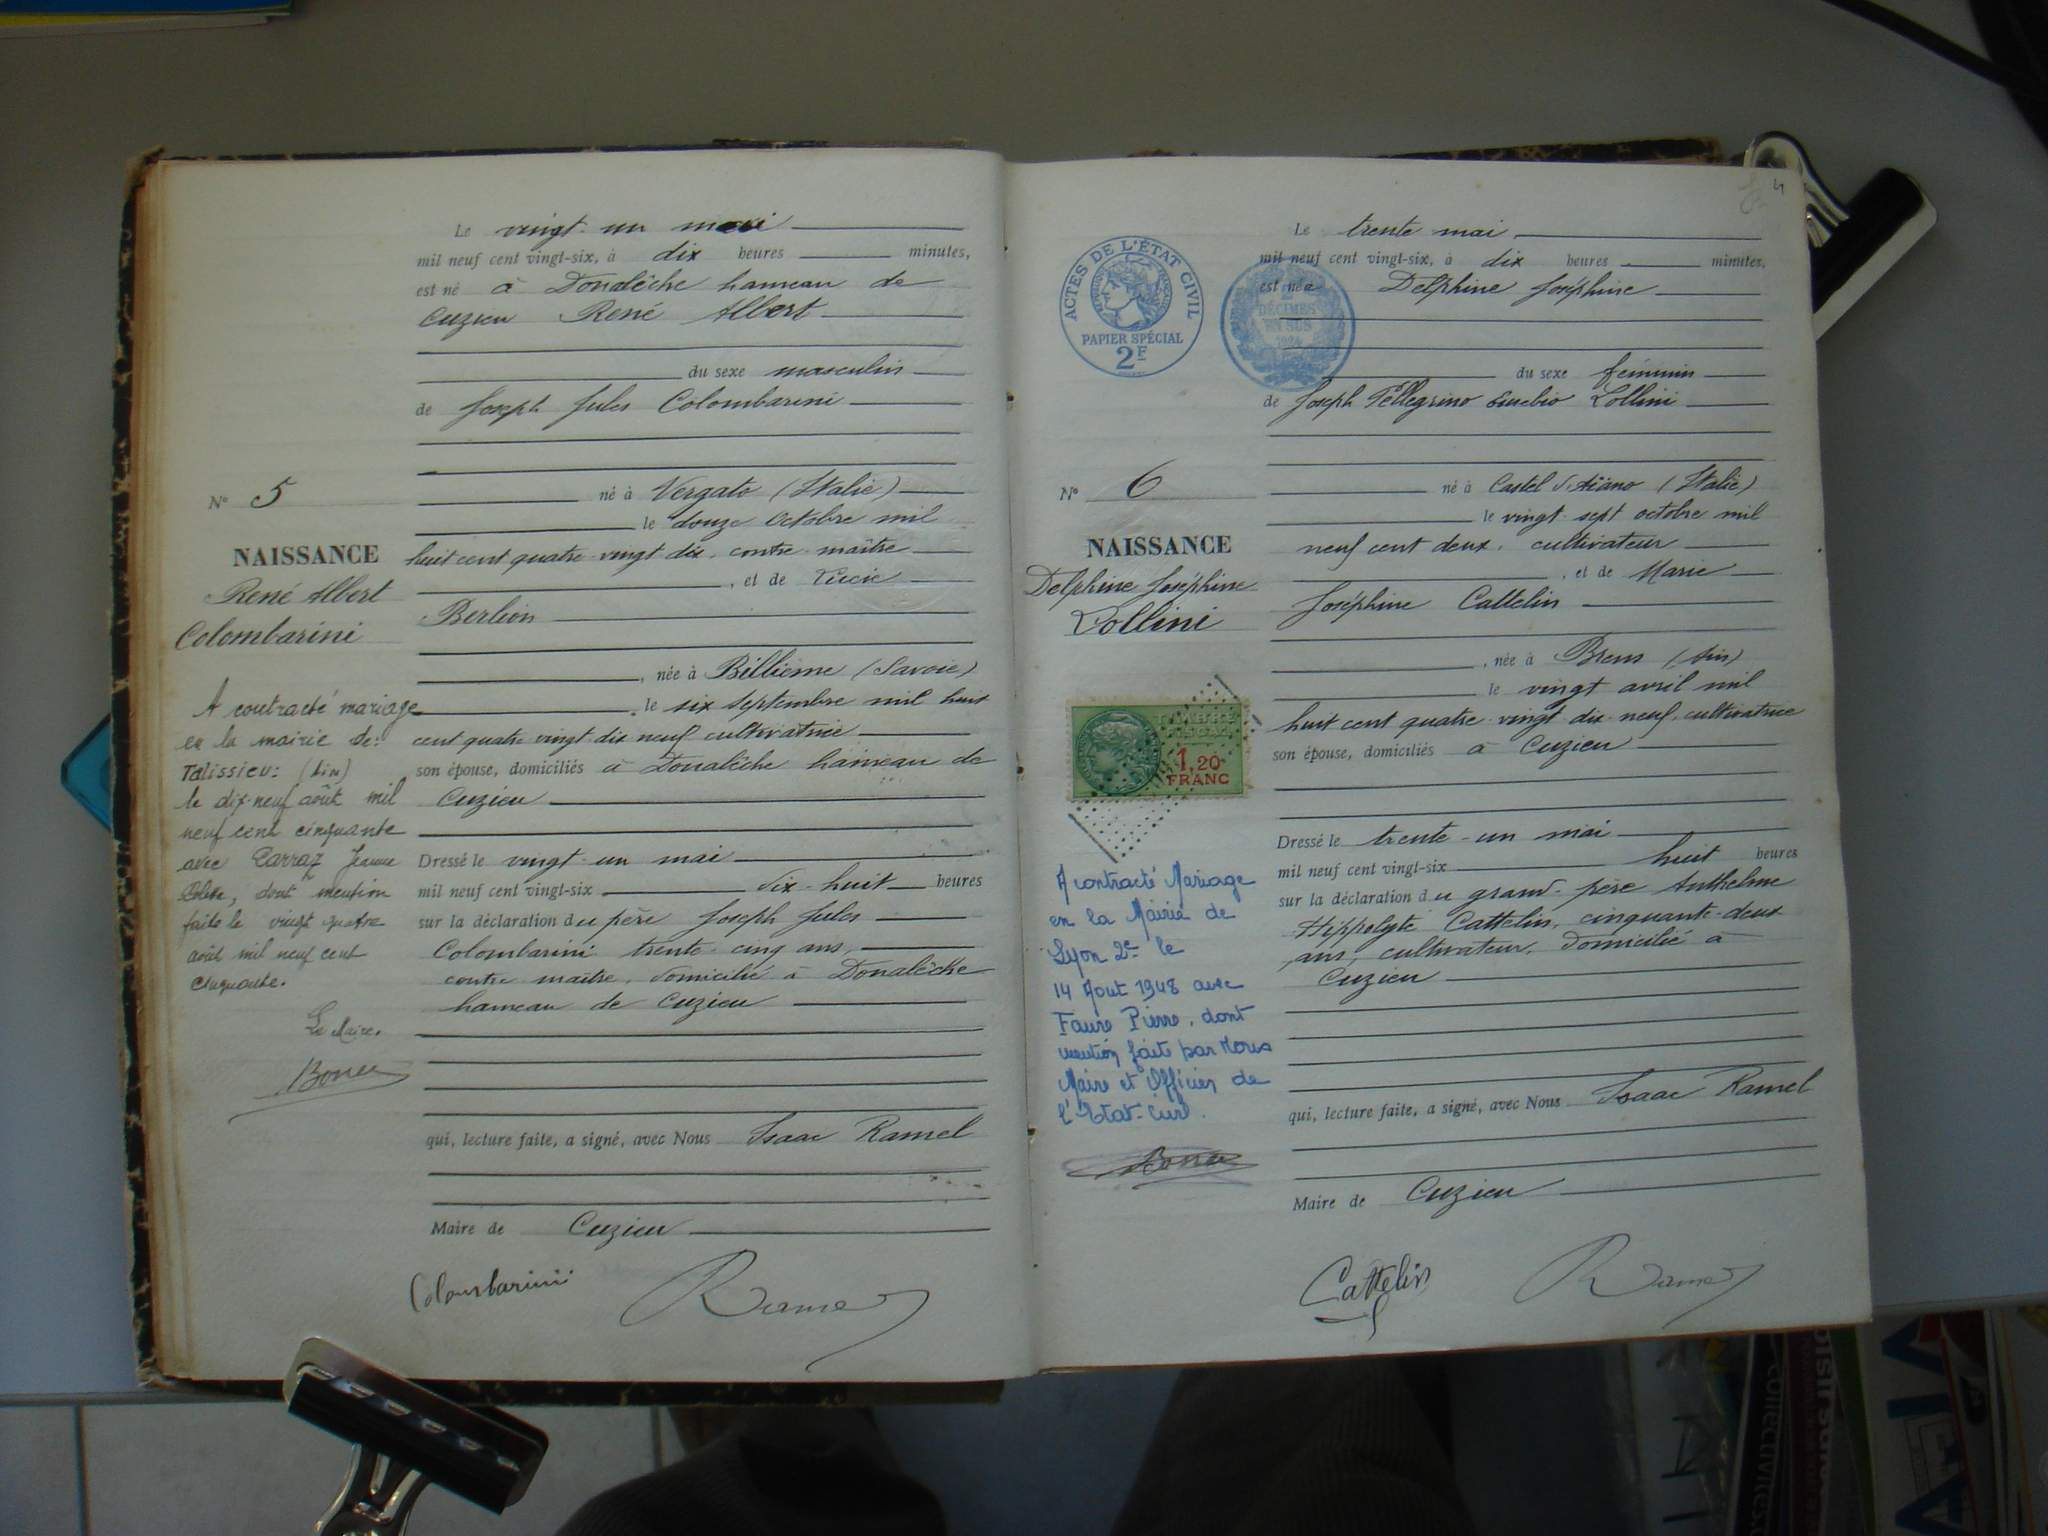 Le vingt-un mai
mil neuf cent vingt-six, à dix heures minutes,
est né à Donalèche hameau de
Cuzieu René Albert
du sexe masculin
de Joseph Jules Colombarini
né à Vergato (Italie)
le douze Octobre mil
huit cent quatre-vingt-dix, contre-maître
, et de Lucie
Berlion
, née à Billième (Savoie)
le six septembre mil huit
cent quatre vingt-dix neuf cultivatrice
son épouse, domiciliés à Donalèche hameau de
Cuzieu
Dressé le vingt-un mai
mil neuf cent vingt-six dix-huit heures
sur la déclaration du père Joseph Jules
Colombarini trente-cinq ans,
contre-maître, domicilié à Donalèche
hameau de Cuzieu
qui, lecture faite, a signé, avec Nous Isaac Ramel
Maire de Cuzieu
Colombarini Ramel
N° 5
NAISSANCE
René Albert
Colombarini
A contracté mariage
en la mairie de:
Talissieu: (Ain)
le dix-neuf août mil
neuf cent cinquante
avec Carraz Jeanne
dont mention
faite le vingt quatre
août mil neuf cent
cinquante.
Le Maire.
4
ACTES DE L'ÉTAT CIVIL
PAPIER SPÉCIAL
2F
2
DÉCIMES
EN SUS
1924
Le trente mai
mil neuf cent vingt-six, à dix heures minutes,
est née Delphine Joséphine
du sexe féminin
de Joseph Pellegrino Eusebio Lollini
né à Castel d'Aïano (Italie)
le vingt-sept octobre mil
neuf cent deux, cultivateur
, et de Marie
Joséphine Cattelin
, née à Brens (Ain)
le vingt avril mil
huit cent quatre-vingt-dix-neuf, cultivatrice
son épouse, domiciliés à Cuzieu
Dressé le trente-un mai
mil neuf cent vingt-six huit heures
sur la déclaration du grand-père Anthelme
Hippolyte Cattelin, cinquante-deux
ans, cultivateur, domicilié à
Cuzieu
qui, lecture faite, a signé, avec Nous Isaac Ramel
Maire de Cuzieu
Cattelin Ramel
N° 6
NAISSANCE
Delphine Joséphine
Lollini
1,20
FRANC
A contracté Mariage
en la Mairie de
Lyon 2e le
14 Aout 1948 avec
Faure Pierre, dont
mention faite par Nous
Maire et Officier de
l'Etat-Civil.